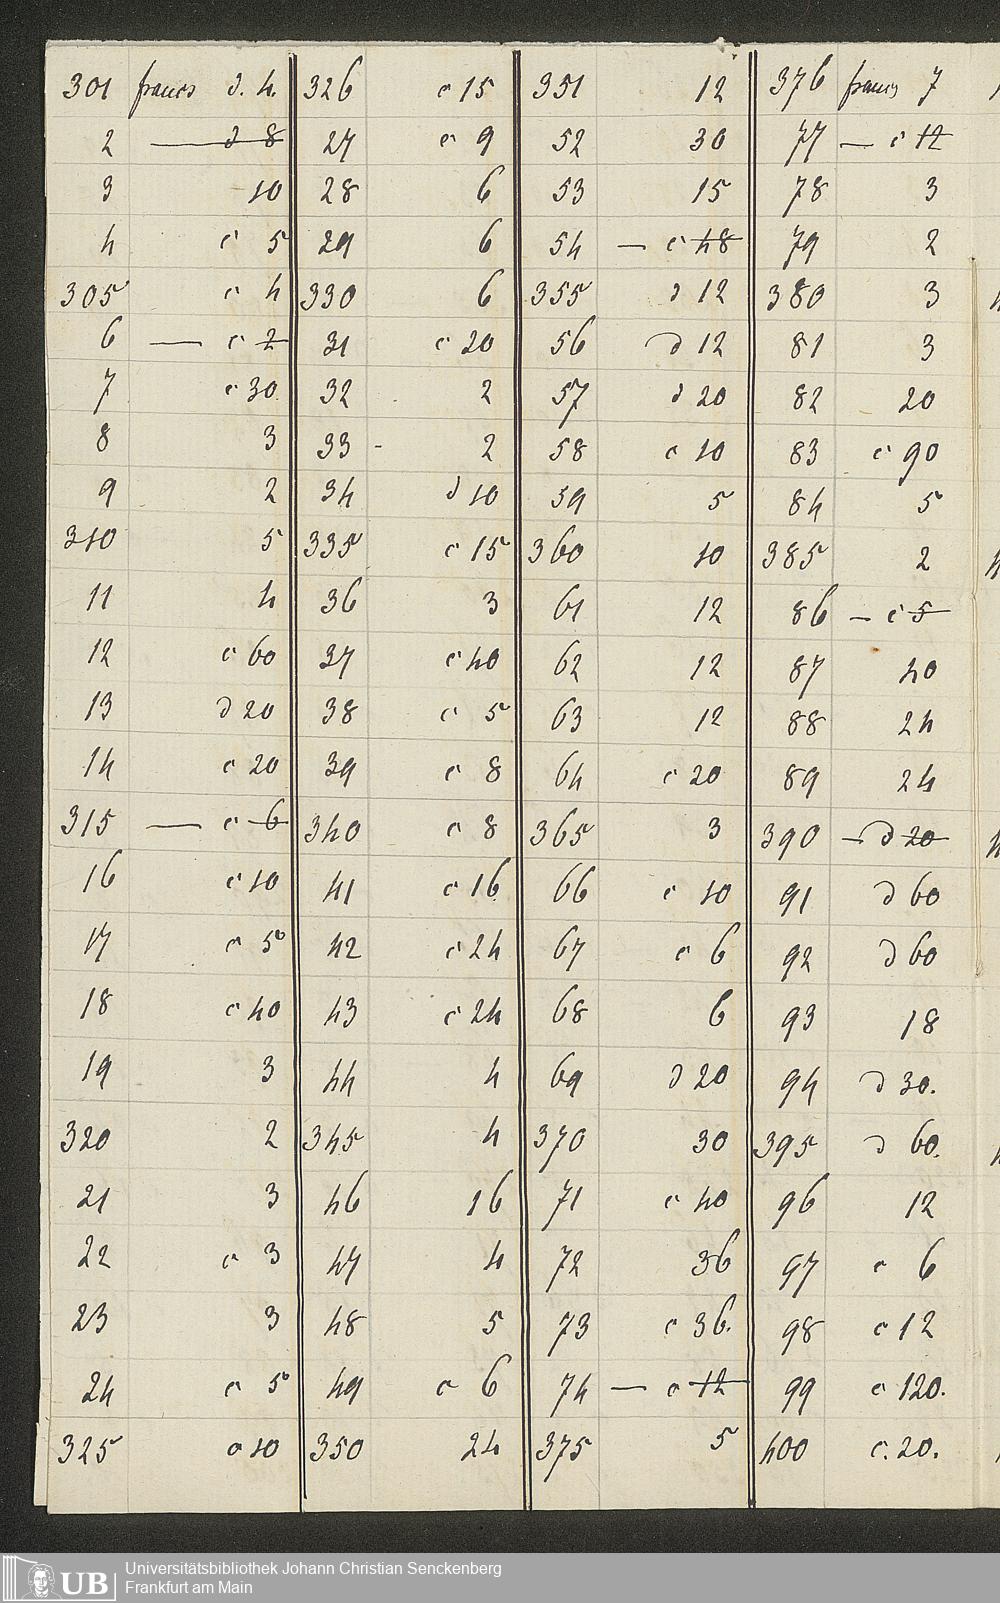 301 francs d. 4. 326 c 15 351 12 376 francs 7
2 — d 8 27 c 9 52 30 77 — c 12
3 10 28 6 53 15 78 3
4 c 5 29 6 54 — c 48 79 2
305 c 4 330 6 355 d 12 380 3
6 — c 2 31 c 20 56 d 12 81 3
7 c 30 32 2 57 d 20 82 20
8 3 33 - 2 58 c 10 83 c 90
9 2 34 d 10 59 5 84 5
310 5 335 c 15 360 10 385 2
11 4 36 3 61 12 86 — c 5
12 c 60 37 c 40 62 12 87 40
13 d 20 38 c 5 63 12 88 24
14 c 20 39 c 8 64 c 20 89 24
315 — c 6 340 c 8 365 3 390 — d 20
16 c 10 41 c 16 66 c 10 91 d 60
17 c 5 42 c 24 67 c 6 92 d 60
18 c 40 43 c 24 68 6 93 18
19 3 44 4 69 d 20 94 d 30.
320 2 345 4 370 30 395 d 60.
21 3 46 16 71 c 40 96 12
22 c 3 47 4 72 36 97 c 6
23 3 48 5 73 c 36. 98 c 12
24 c 5 49 c 6 74 — c 12 99 c 120.
325 c 10 350 24 375 5 400 c. 20.
UB Universitätsbibliothek Johann Christian Senckenberg
Frankfurt am Main